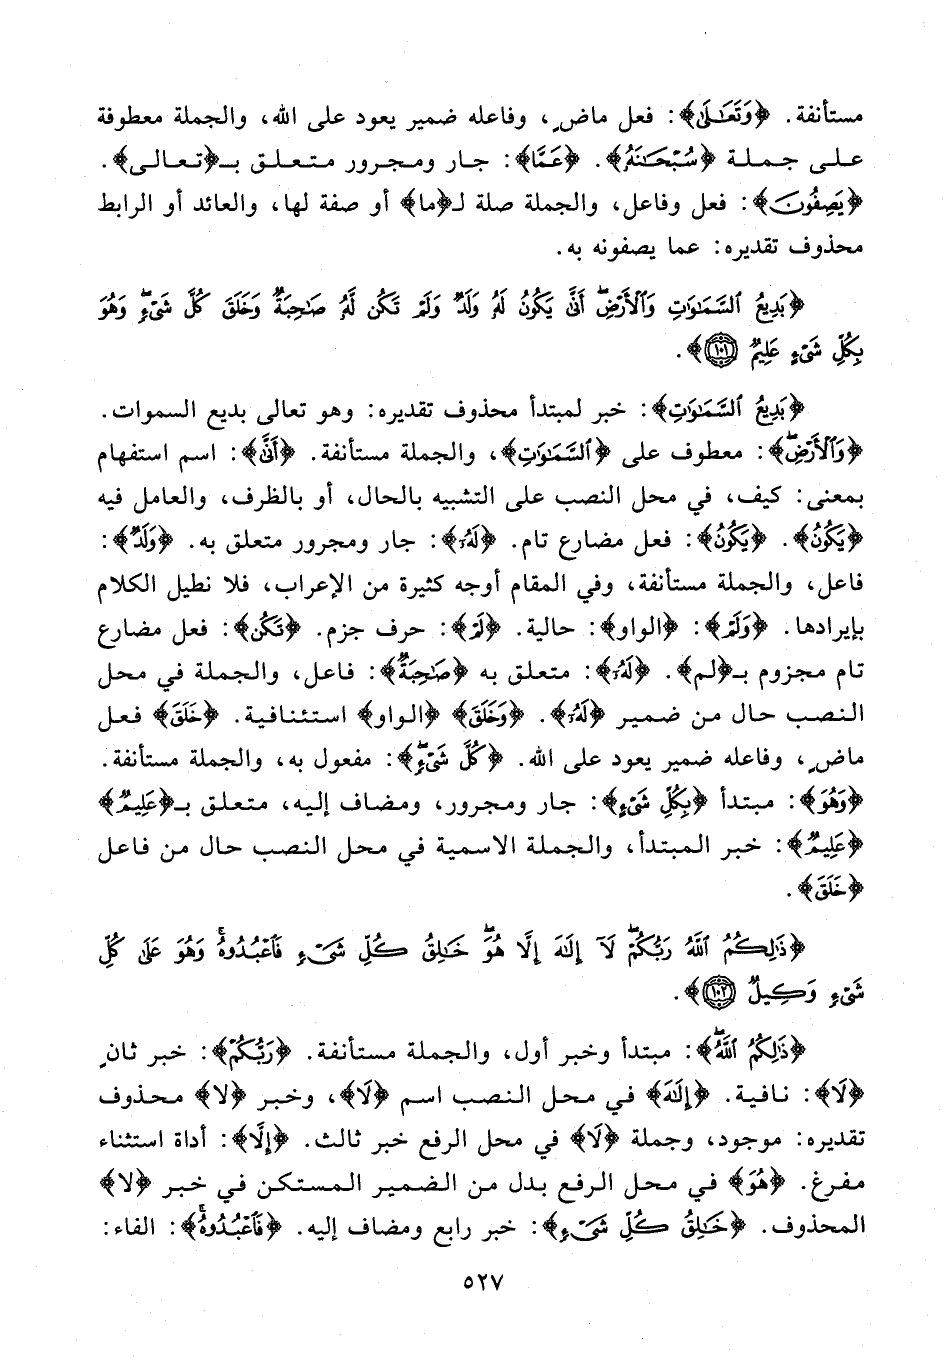 مستأنفة. ﴿وَتَعَٰلَىٰ﴾: فعل ماضٍ، وفاعله ضمير يعود على الله، والجملة معطوفة
على جملة ﴿سُبْحَٰنَهُۥ﴾. ﴿عَمَّا﴾: جار ومجرور متعلق بـ﴿تعالى﴾.
﴿يَصِفُونَ﴾: فعل وفاعل، والجملة صلة لـ﴿ما﴾ أو صفة لها، والعائد أو الرابط
محذوف تقديره: عما يصفونه به.
﴿بَدِيعُ ٱلسَّمَٰوَٰتِ وَٱلْأَرْضِۖ أَنَّىٰ يَكُونُ لَهُۥ وَلَدٌ وَلَمْ تَكُن لَّهُۥ صَٰحِبَةٌۖ وَخَلَقَ كُلَّ شَىْءٍۖ وَهُوَ
بِكُلِّ شَىْءٍ عَلِيمٌ ١٠١﴾.
﴿بَدِيعُ ٱلسَّمَٰوَٰتِ﴾: خبر لمبتدأ محذوف تقديره: وهو تعالى بديع السموات.
﴿وَٱلْأَرْضِۖ﴾: معطوف على ﴿ٱلسَّمَٰوَٰتِ﴾، والجملة مستأنفة. ﴿أَنَّىٰ﴾: اسم استفهام
بمعنى: كيف، في محل النصب على التشبيه بالحال، أو بالظرف، والعامل فيه
﴿يَكُونُ﴾. ﴿يَكُونُ﴾: فعل مضارع تام. ﴿لَهُۥ﴾: جار ومجرور متعلق به. ﴿وَلَدٌ﴾:
فاعل، والجملة مستأنفة، وفي المقام أوجه كثيرة من الإعراب، فلا نطيل الكلام
بإيرادها. ﴿وَلَمْ﴾: ﴿الواو﴾: حالية. ﴿لَمْ﴾: حرف جزم. ﴿تَكُن﴾: فعل مضارع
تام مجزوم بـ﴿لم﴾. ﴿لَهُۥ﴾: متعلق به ﴿صَٰحِبَةٌۖ﴾: فاعل، والجملة في محل
النصب حال من ضمير ﴿لَهُۥ﴾. ﴿وَخَلَقَ﴾ ﴿الواو﴾ استئنافية. ﴿خَلَقَ﴾ فعل
ماضٍ، وفاعله ضمير يعود على الله. ﴿كُلَّ شَىْءٍۖ﴾: مفعول به، والجملة مستأنفة.
﴿وَهُوَ﴾: مبتدأ ﴿بِكُلِّ شَىْءٍ﴾: جار ومجرور، ومضاف إليه، متعلق بـ﴿عَلِيمٌ﴾
﴿عَلِيمٌ﴾: خبر المبتدأ، والجملة الاسمية في محل النصب حال من فاعل
﴿خَلَقَ﴾.
﴿ذَٰلِكُمُ ٱللَّهُ رَبُّكُمْۖ لَآ إِلَٰهَ إِلَّا هُوَۖ خَٰلِقُ كُلِّ شَىْءٍ فَٱعْبُدُوهُۚ وَهُوَ عَلَىٰ كُلِّ
شَىْءٍ وَكِيلٌ ١٠٢﴾.
﴿ذَٰلِكُمُ ٱللَّهُۖ﴾: مبتدأ وخبر أول، والجملة مستأنفة. ﴿رَبُّكُمْ﴾: خبر ثانٍ
﴿لَا﴾: نافية. ﴿إِلَٰهَ﴾ في محل النصب اسم ﴿لَا﴾، وخبر ﴿لا﴾ محذوف
تقديره: موجود، وجملة ﴿لَا﴾ في محل الرفع خبر ثالث. ﴿إِلَّا﴾: أداة استثناء
مفرغ. ﴿هُوَ﴾ في محل الرفع بدل من الضمير المستكن في خبر ﴿لا﴾
المحذوف. ﴿خَٰلِقُ كُلِّ شَىْءٍ﴾: خبر رابع ومضاف إليه. ﴿فَٱعْبُدُوهُۚ﴾: الفاء:
٥٢٧